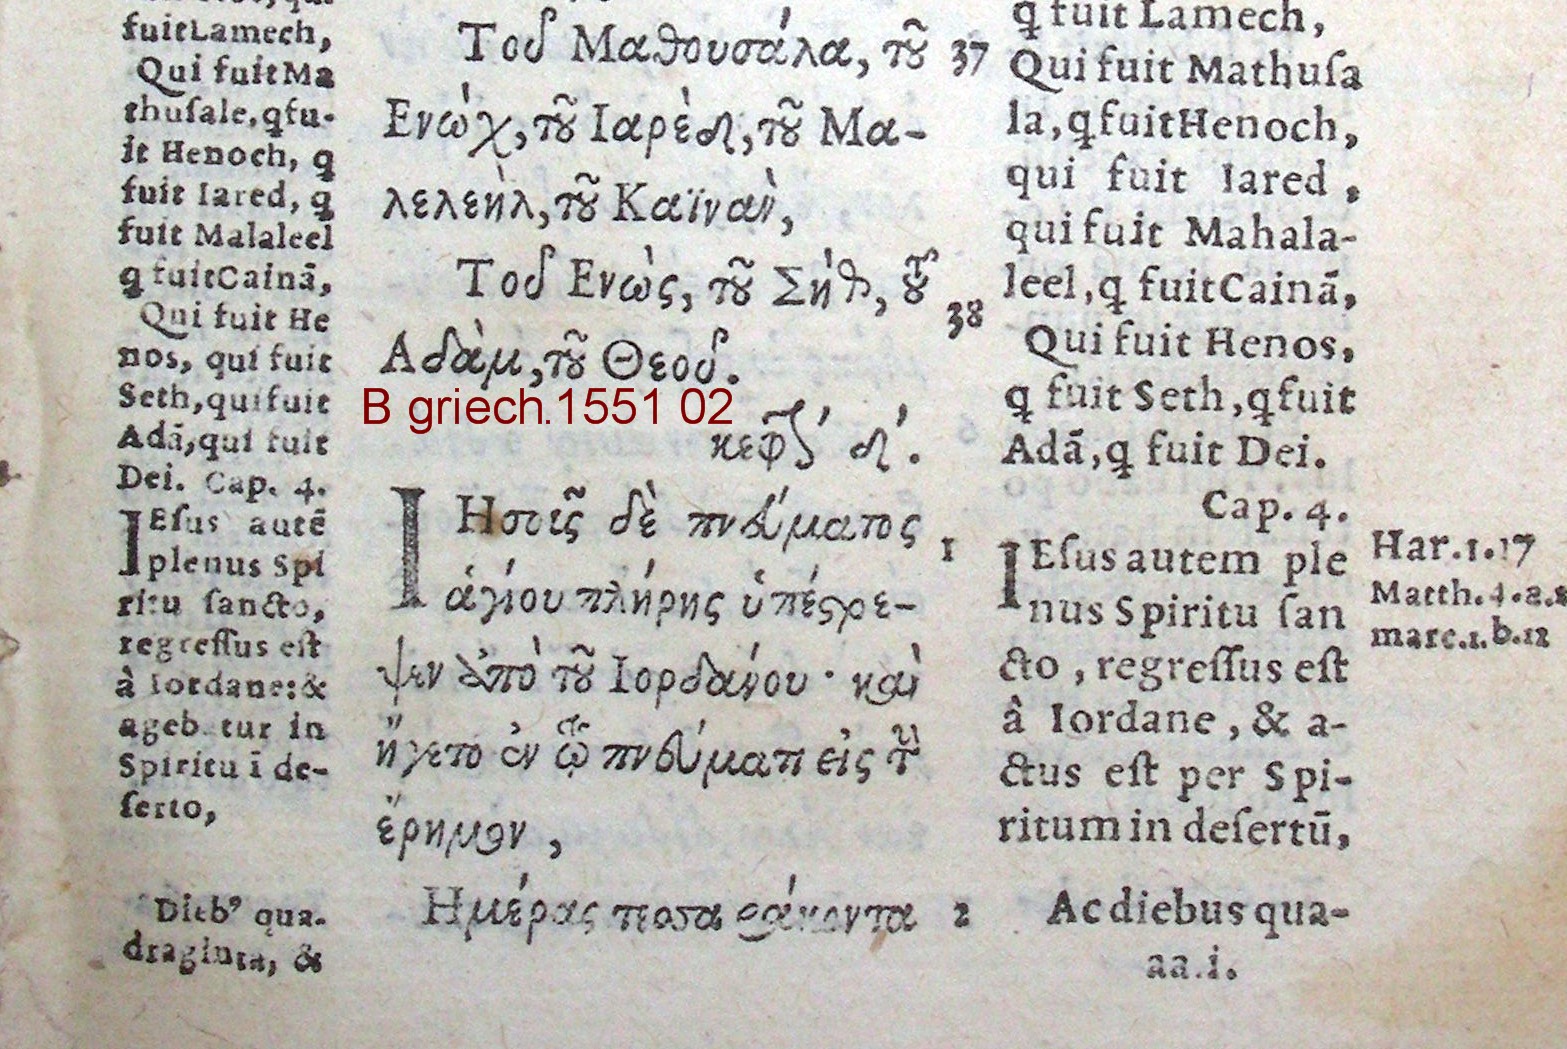 fuitLamech,
Qui fuit Ma
thusale, qfu-
it Henoch, q
fuit Iared, q
fuit Malaleel
q fuitCainā,
Qui fuit He
nos, qui fuit
Seth, qui fuit
Adā, qui fuit
Dei. Cap. 4.
IEsus autē
plenus Spi
ritu sancto,
regressus est
à Iordane: &
ageb tur in
Spiritu ī de-
serto,
Dieb9 qua-
draginta, &
Τοῦ Μαθουσάλα, τοῦ 37
Ενὼχ, τοῦ Ιαρὲδ, τοῦ Μα-
λελεὴλ, τοῦ Καϊνὰν,
Τοῦ Ενὼς, τοῦ Σὴθ, τοῦ 38
Αδὰμ, τοῦ Θεοῦ.
B griech.1551 02
κεφ δ'.
ΙΗσοῦς δὲ πνεύματος 1
ἁγίου πλήρης ὑπέστρε-
ψεν ἀπὸ τοῦ Ιορδάνου · καὶ
ἤγετο ἐν τῷ πνεύματι εἰς τὴν
ἔρημον,
Ημέρας τεσσαράκοντα 2
q fuit Lamech,
Qui fuit Mathusa
la, q fuit Henoch,
qui fuit Iared,
qui fuit Mahala-
leel, q fuit Cainā,
Qui fuit Henos,
q fuit Seth, q fuit
Adā, q fuit Dei.
Cap. 4.
IEsus autem ple
nus Spiritu san
cto, regressus est
à Iordane, & a-
ctus est per Spi-
ritum in desertū,
Ac diebus qua-
aa.i.
Har.1.17
Matth.4.a.
marc.1.b.12